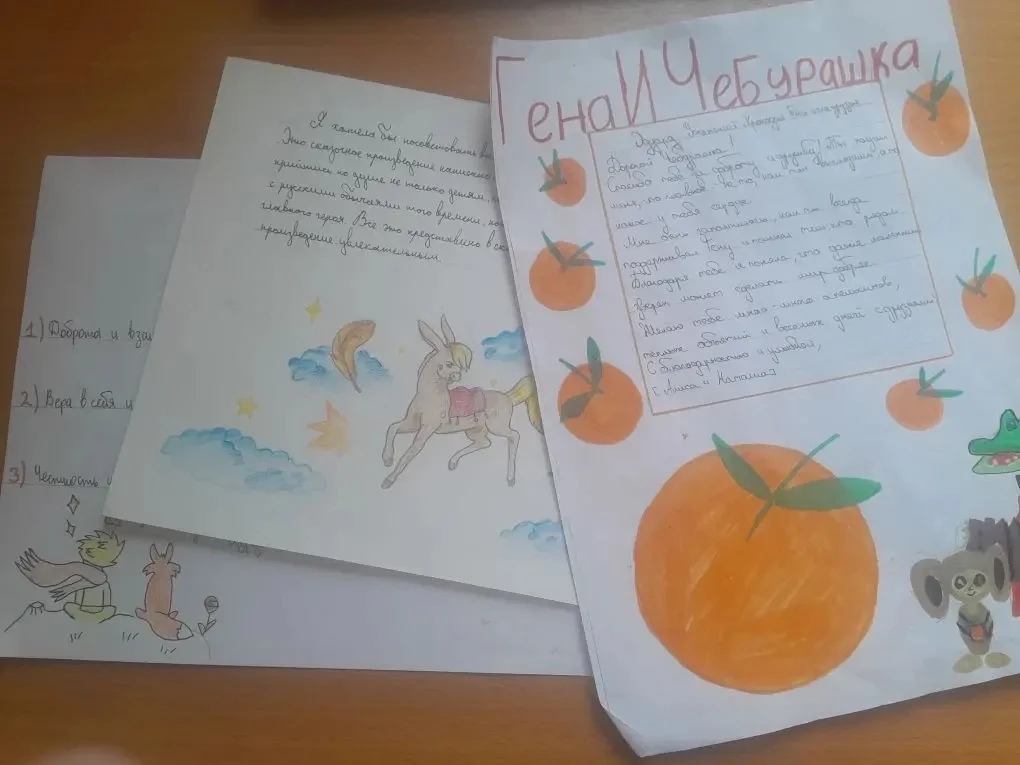 1) Доброта и взаи
2) Вера в себя и
3) Честность и
Я хотела бы посоветовать ва
Это сказочное произведение написано
прийтись по душе не только детям, н
с русскими обычаями того времени, по
главного героя. Все это представлено в ск
произведение увлекательным.
Гена И Чебурашка
Эдуард Успенский «Крокодил Гена и его друзья
Дорогой Чебурашка!
Спасибо тебе за доброту и дружбу! Ты научил
меня, что главное не то, как ты выглядишь, а то
какое у тебя сердце.
Мне очень запомнилось, как ты всегда
поддерживал Гену и помогал тем кто рядом.
Благодаря тебе я поняла, что даже маленький
может сделать мир добрее.
Желаю тебе много-много апельсинов,
теплых объятий и веселых дней с друзьями
С благодарностью и улыбкой,
[Алиса и Наташа]